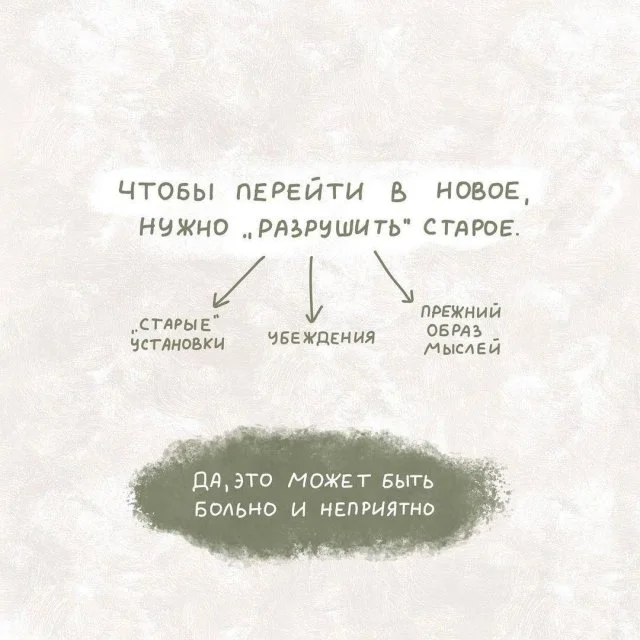 ЧТОБЫ ПЕРЕЙТИ В НОВОЕ,
НУЖНО „РАЗРУШИТЬ" СТАРОЕ.
„СТАРЫЕ"
УСТАНОВКИ
УБЕЖДЕНИЯ
ПРЕЖНИЙ
ОБРАЗ
МЫСЛЕЙ
ДА, ЭТО МОЖЕТ БЫТЬ
БОЛЬНО И НЕПРИЯТНО